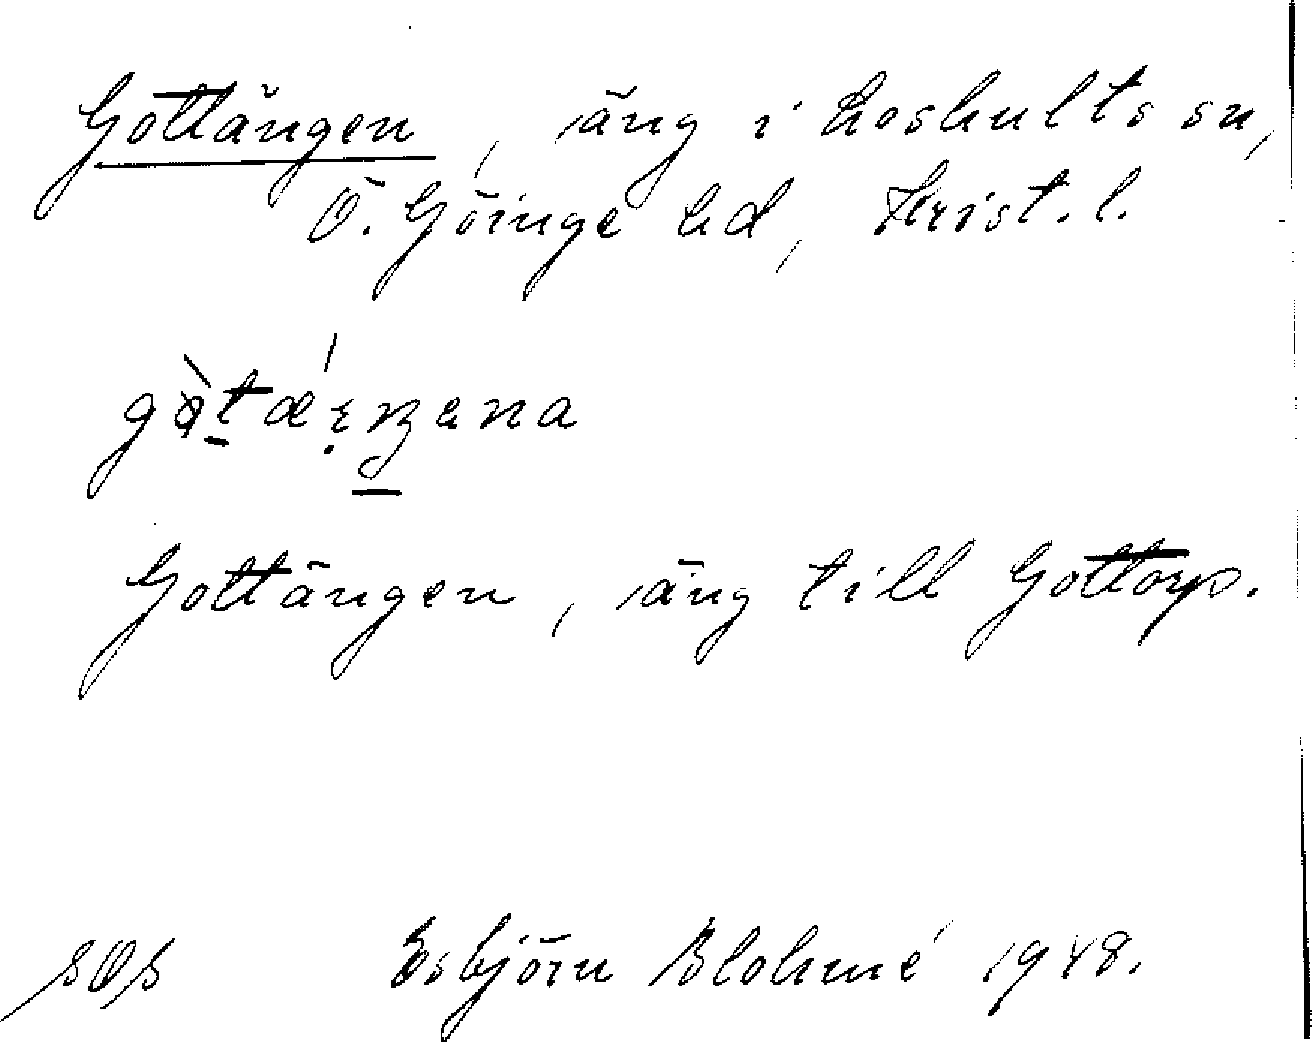 Gottängen, äng i Loshults sn,
Ö. Göinge hd, Krist. l.
Gottängen, äng till Gottorp.
Esbjörn Blohmé 1948.